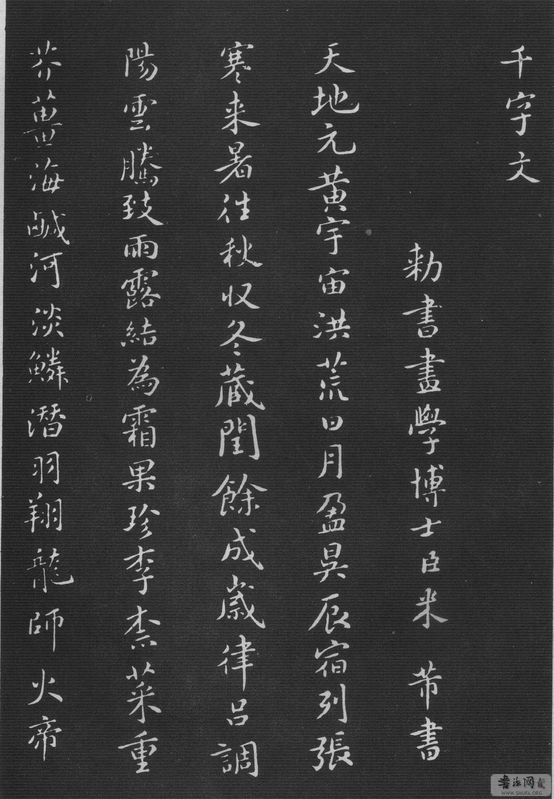 千字文
勅書畫學博士臣米芾書
天地元黄宇宙洪荒日月盈昃辰宿列張
寒来暑往秋収冬蔵閏餘成歳律呂調
陽雲騰致雨露結為霜果珍李柰菜重
芥薑海鹹河淡鱗潛羽翔龍師火帝
書法网